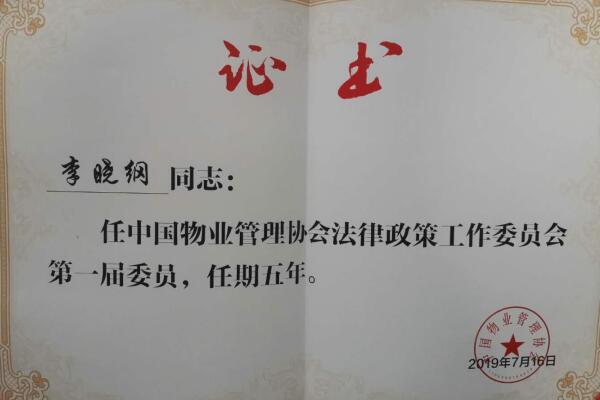 证书
李晓纲 同志：
任中国物业管理协会法律政策工作委员会
第一届委员，任期五年。
中国物业管理协会
2019年7月16日